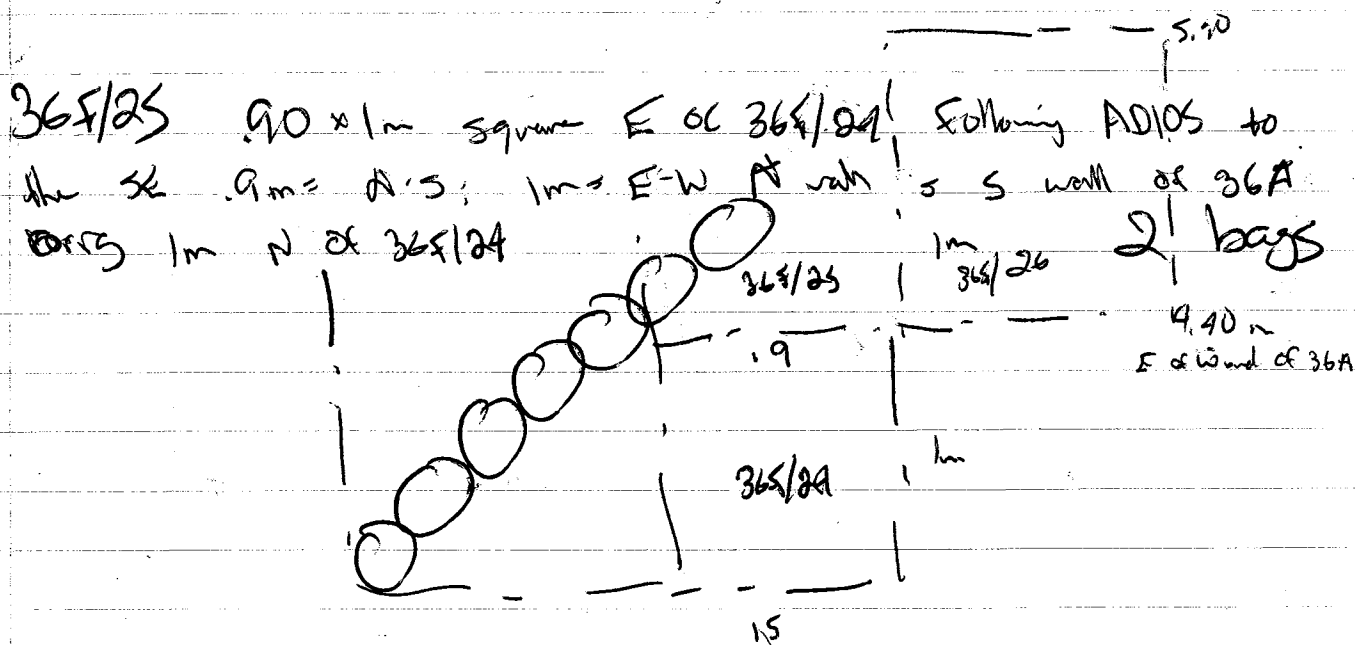 5.90
36F/25 .90 x 1m square E of 36F/24 Following ADIOS to
the SE .9m = N-S, 1m = E-W N wall = S wall of 36A
1m N of 36F/24
2 bags
1m
36F/25 36F/26
4.40 m
.9
E of W end of 36A
1m
36F/24
1.5